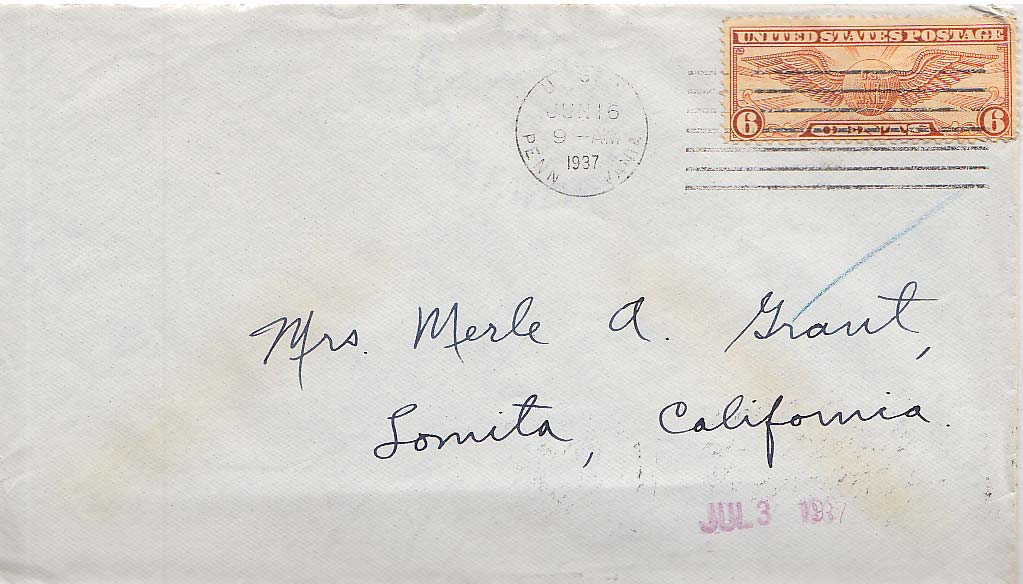 UNITED STATES POSTAGE
U.S.
JUN 16
9-AM
1937
PENN VANIA
6 CENTS 6
Mrs. Merle A. Grant,
Lomita, California.
JUL 3 1937